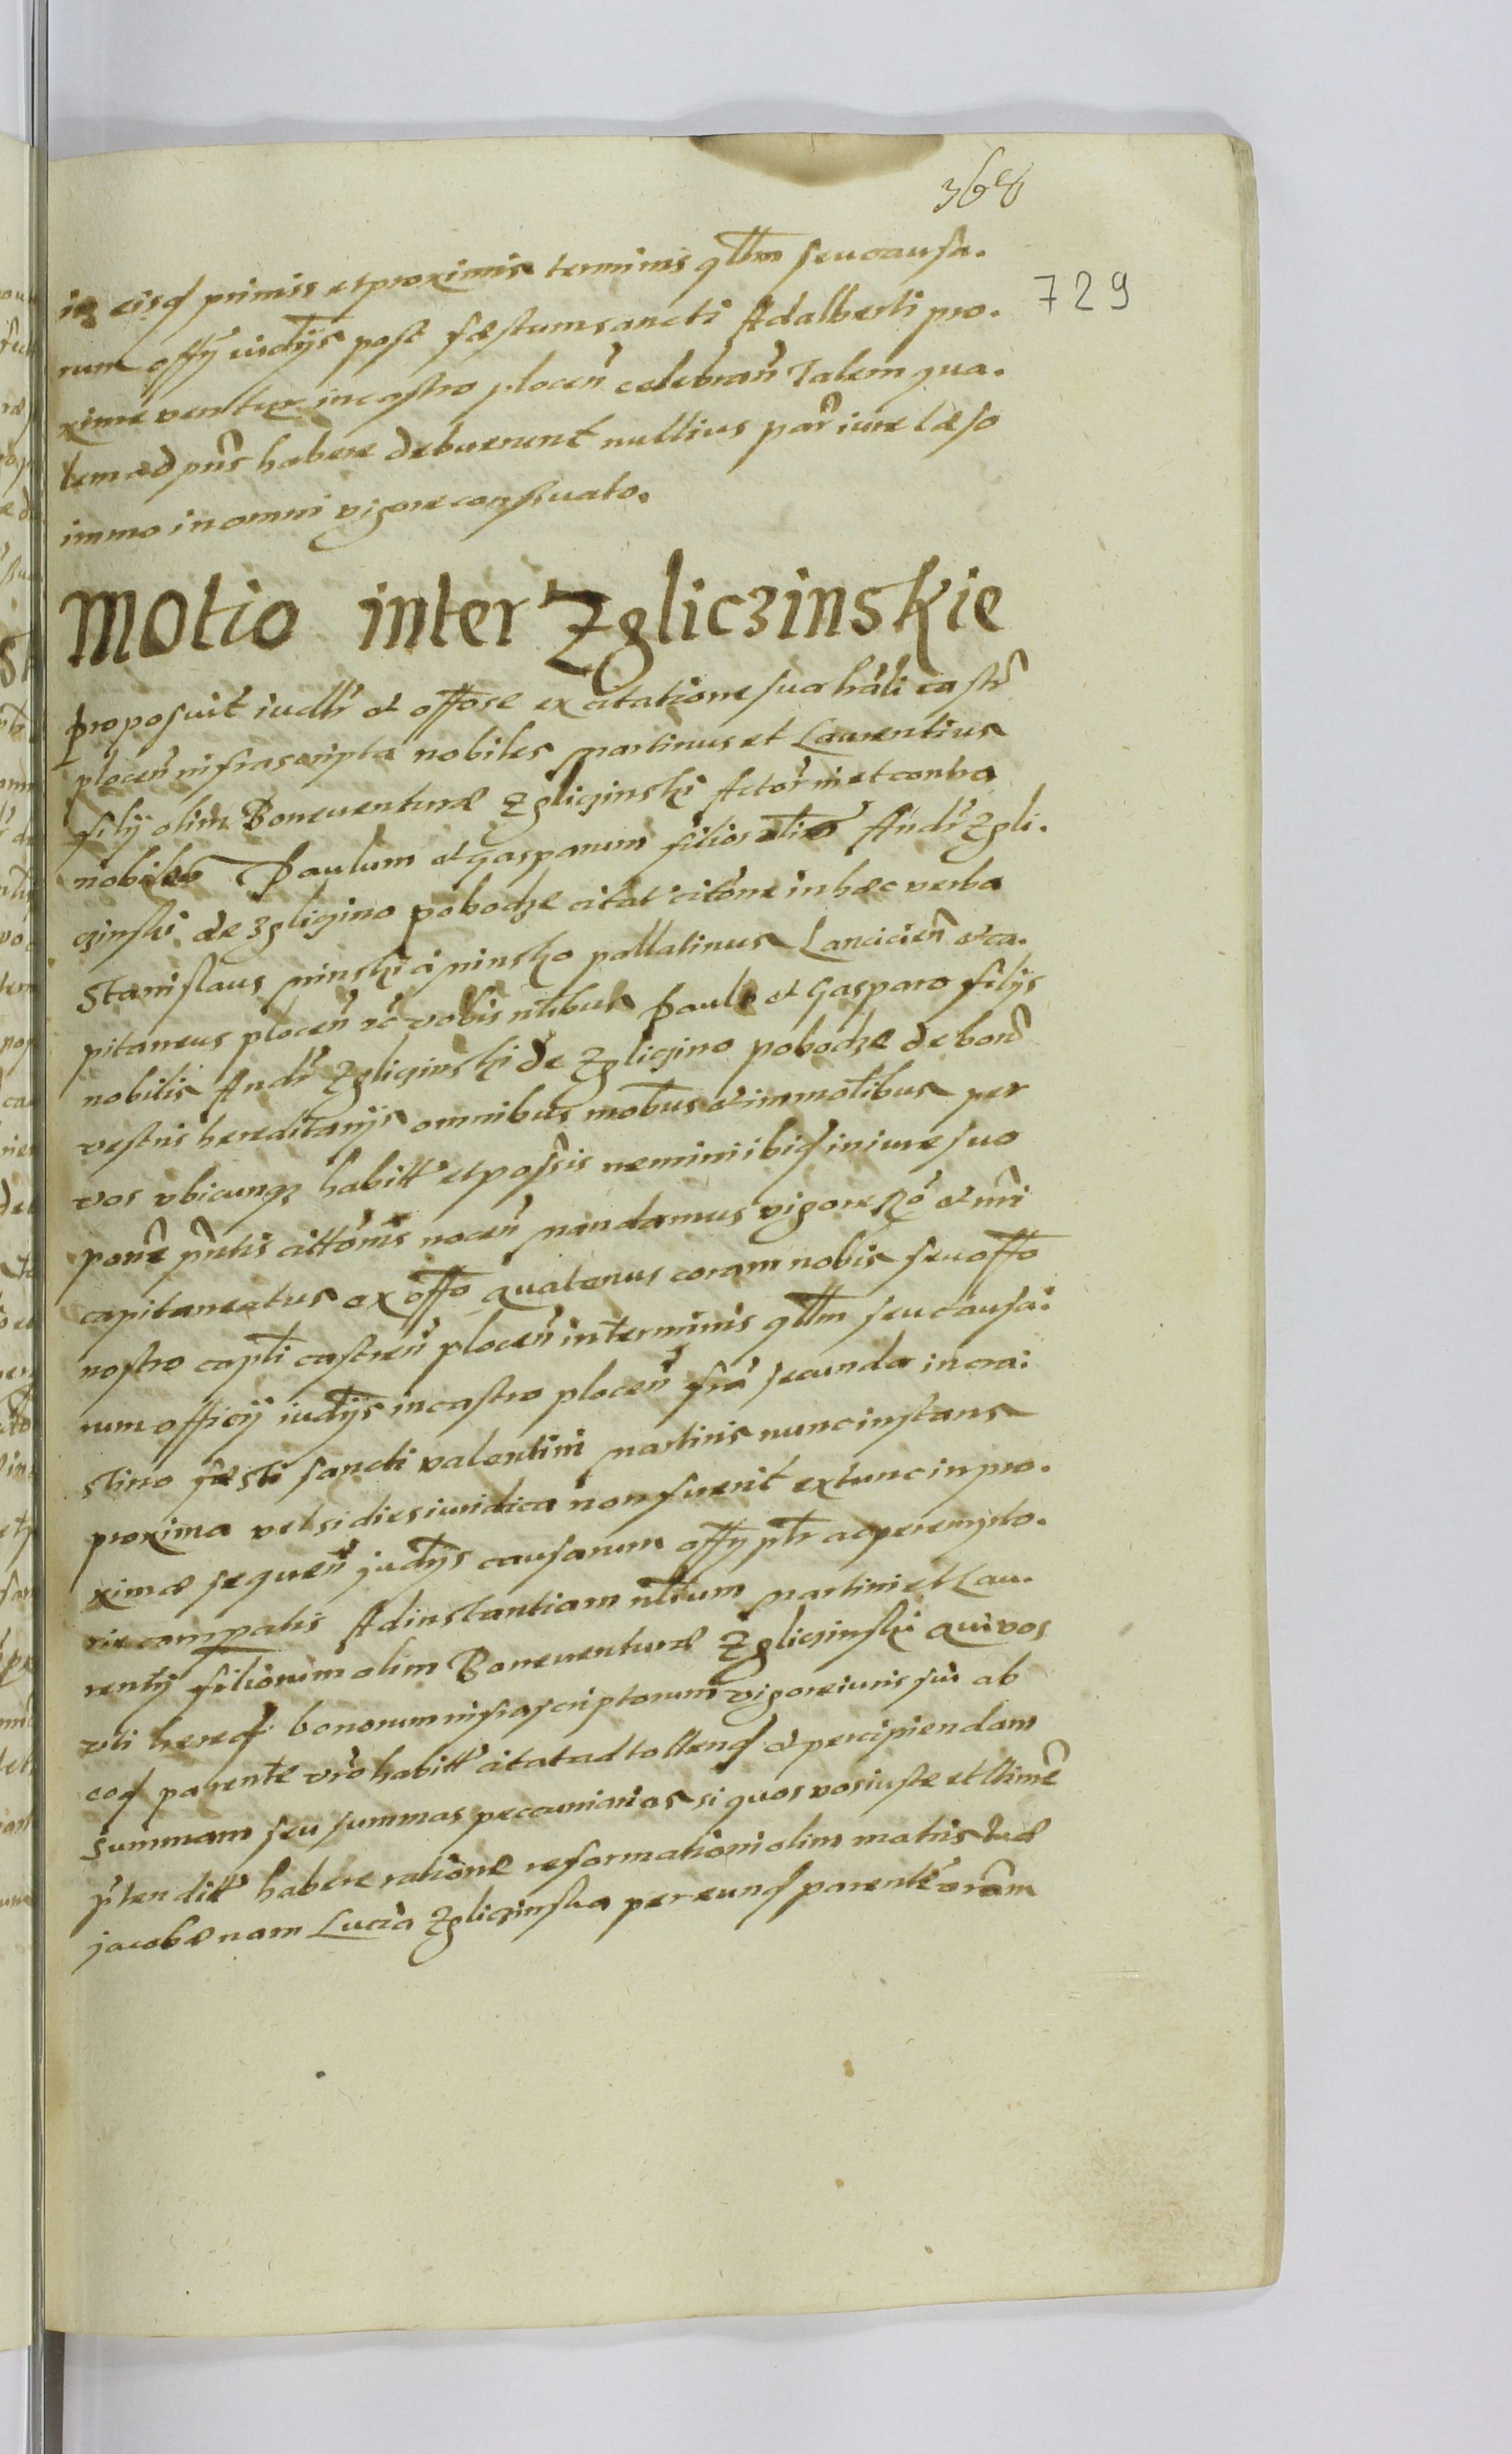 368
729
in eisd primis et proximis terminis qllm seu causa.
rum offÿ iudÿs post fæstum sancti Adalberti pro.
xime ventur in castro plocen celebran Talem qua.
lem ad pns habere debuerunt nullius par iure læso
immo in omni vigore conseruato.
Motio inter Zgliczinskie
Proposuit iudlr et offose ex citatione sua hali castr
plocen infrascripta nobiles Martinus et Laurentius
filÿ olim Boneuenturæ Zgliczinski Actor in et contra
nobiles Paulum et Gasparum filios olim Andr Zgli.
czinski de Zgliczino pobodze citat citone in hæc verba
Stanislaus Minski a Minsko pallatinus Lancicien et ca.
pitaneus plocen vobis nlibus Paulo et Gasparo filÿs
nobilis Andr Zgliczinski de Zgliczino pobodze de bon
vestris hereditarÿs omnibus mobus et immolibus per
vos vbicunqz habitt et possis nemini ibid in iure suo
pone pntis cittonis nocen Mandamus vigore Ro et nri
capitaneatus ex offo quatenus coram nobis seu offo
nostro capli castren plocen in terminis qllm seu causa:
rum officÿ iudÿs in castro plocen fra secunda in cra:
stino fæsti sancti valentini Martiris nunc instans
proxima vel si dies iuridica non fuerit extunc in pro.
ximæ sequen judÿs causarum offÿ plr ac perempto.
rie compatis Ad instantiam nlium Martini et Lau.
rentÿ filiorum olim Boneuenturæ Zgliczinski qui vos
vti hered bonorum infrascriptorum vigore iuris sui ab
eod parente vro habitt citat ad tollend et percipiendam
summam seu summas pecuniarias si quos vos iuste et ltime
ptenditt habere ratione reformationi olim matris tuæ
jacobæ nam Lucia Zgliczinska per eund parente vram